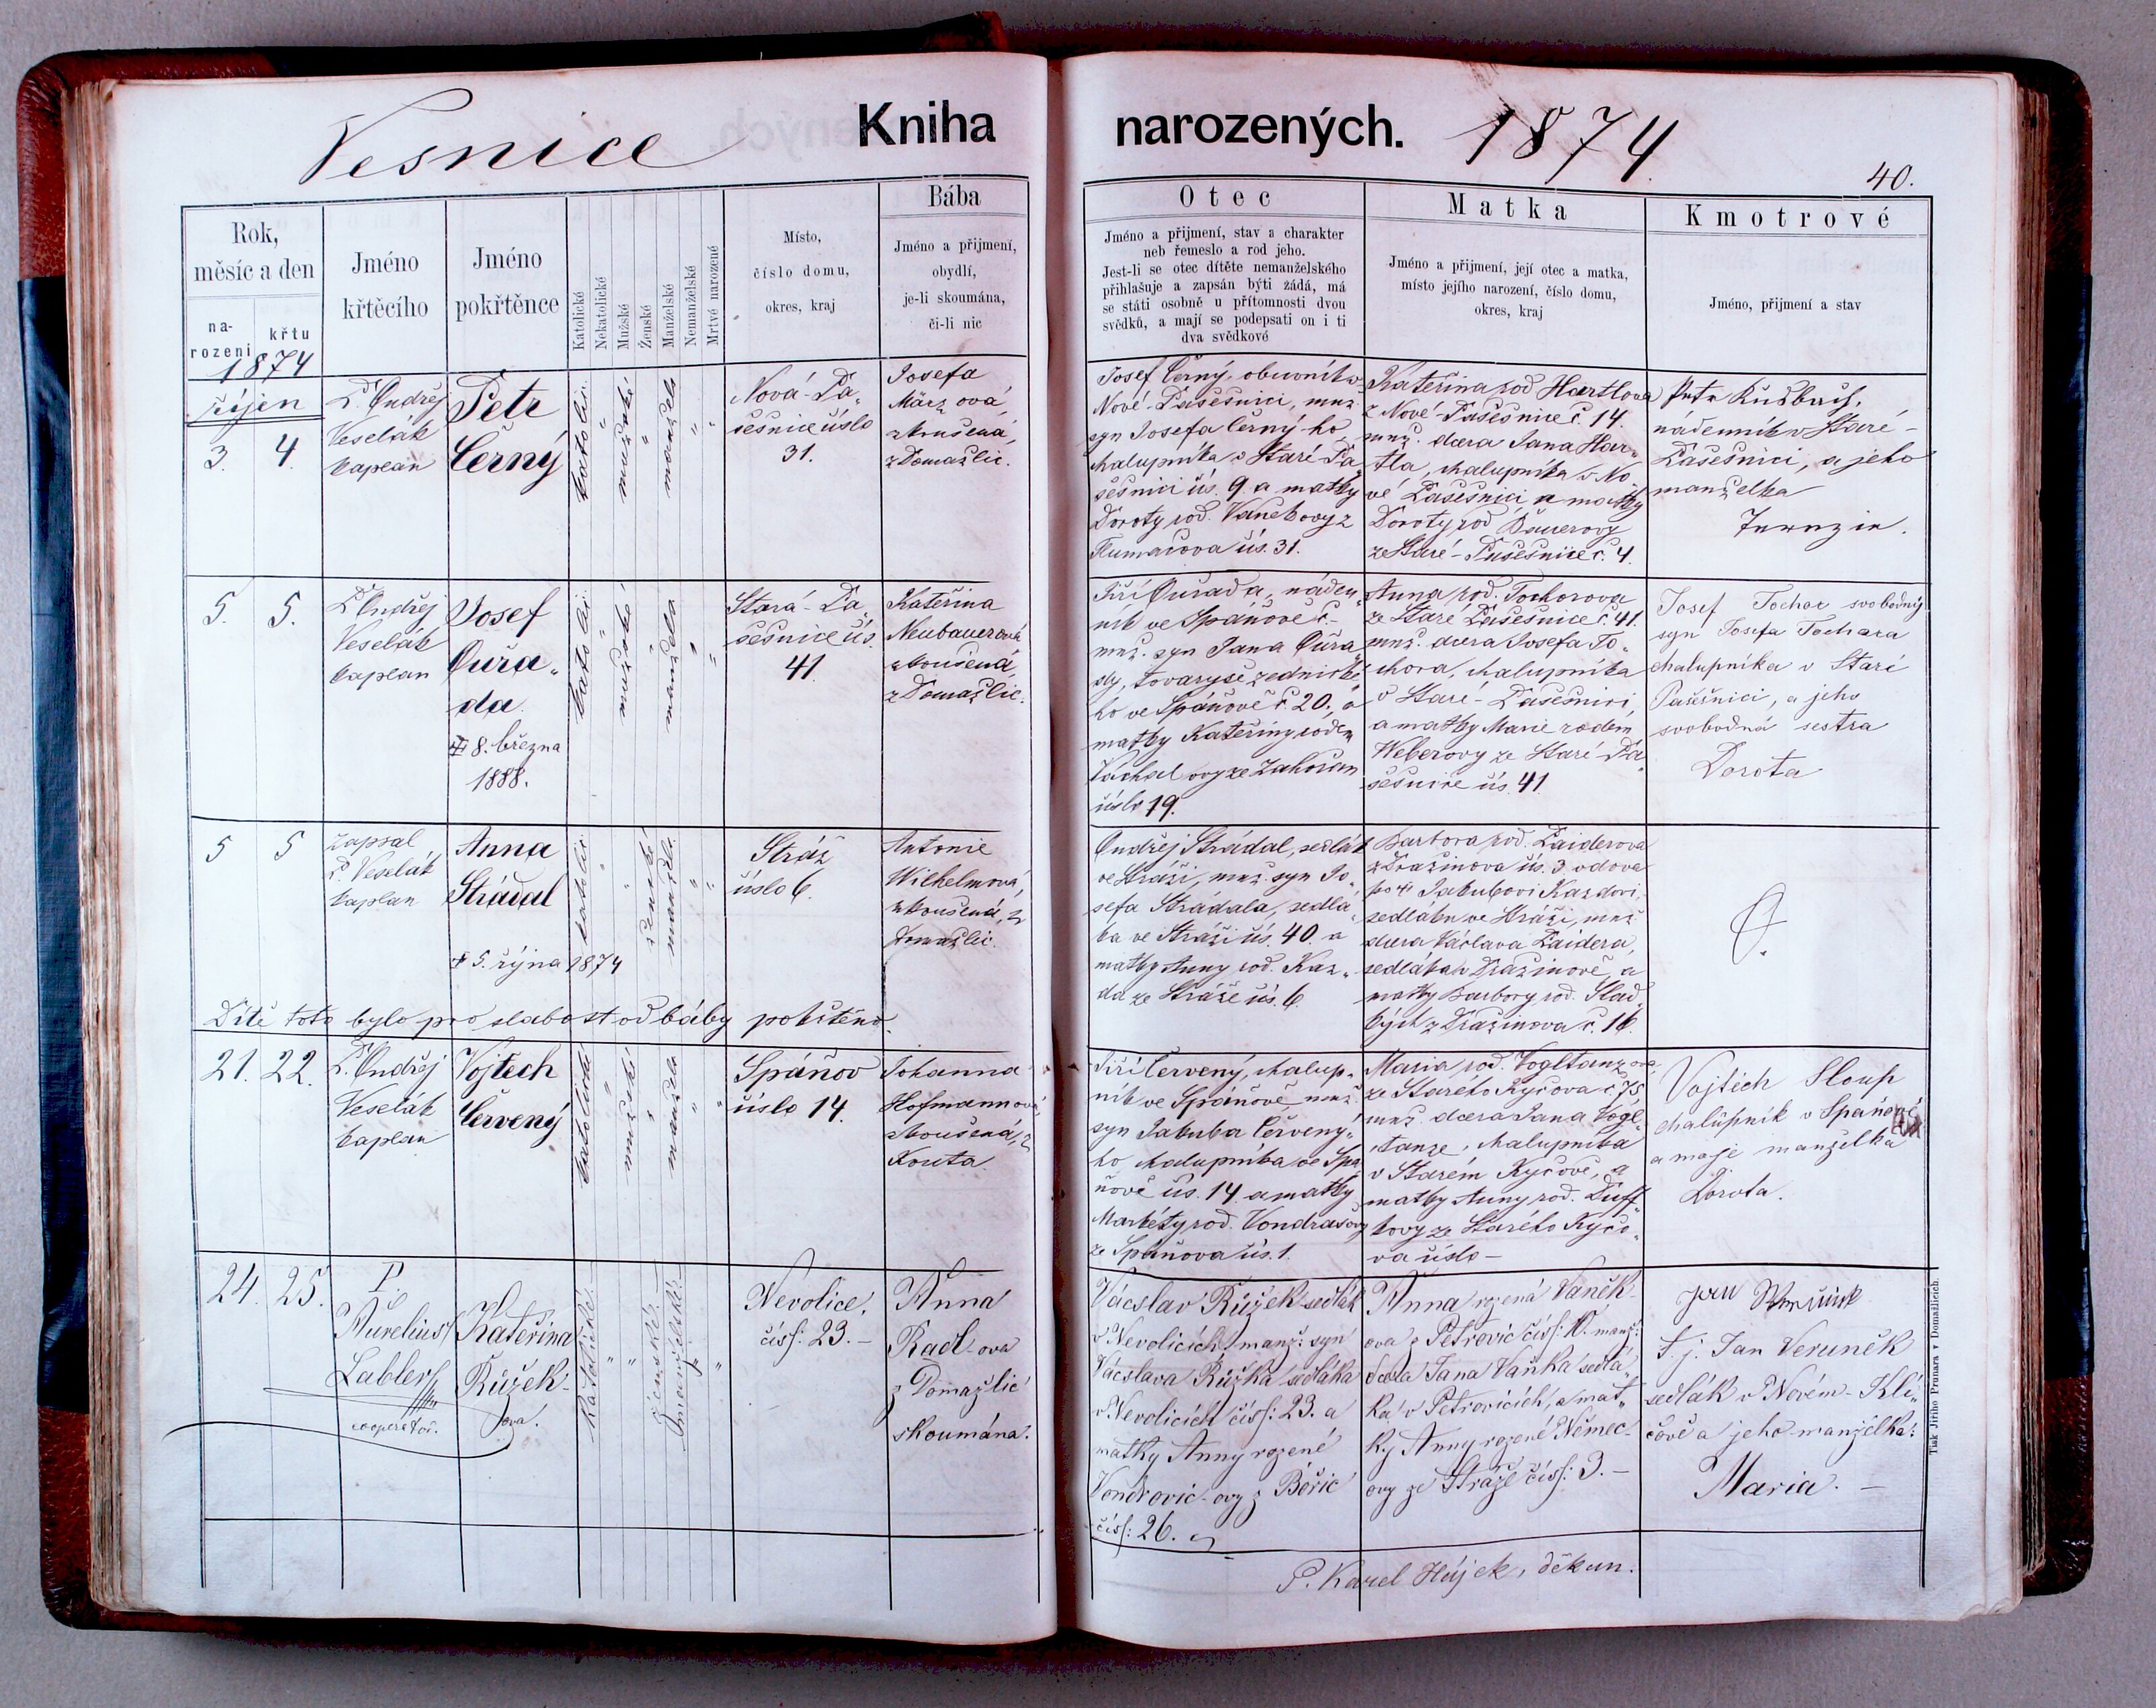 Vesnice
Kniha
narozených.
1874
40.
Rok,
měsíc a den
na-
rozeni
křtu
Jméno
křtěcího
Jméno
pokřtěnce
Katolické
Nekatolické
Mužské
Ženské
Manželské
Nemanželské
Mrtvé narozené
Místo,
číslo domu,
okres, kraj
Bába
Jméno a přijmení,
obydlí,
je-li skoumána,
či-li nic
Otec
Jméno a přijmení, stav a charakter
neb řemeslo a rod jeho.
Jest-li se otec dítěte nemanželského
přihlašuje a zapsán býti žádá, má
se státi osobně u přítomnosti dvou
svědků, a mají se podepsati on i ti
dva svědkové
Matka
Jméno a přijmení, její otec a matka,
místo jejího narození, číslo domu,
okres, kraj
Kmotrové
Jméno, přijmení a stav
1874
říjen
3. 4.
P. Ondřej
Veselák
kaplan
Petr
Černý
katolic.
mužské
manžels
Nová-Pa„
sešnice číslo
31.
Josefa
Märzová,
zkoušená,
z Domažlic.
Josef Černý, obuvník v
Nové-Pasešnici, mnž.
syn Josefa Černý-ho,
chalupníka v Staré Pa„
sešnici čís. 9. a matky
Doroty rod. Vaněkovy z
Tlumačova čís. 31.
Kateřina rod Hartlova
z Nové-Pasešnice č. 14.
mnž. dcera Jana Har„
tla, chalupníka v No„
vé Pasešnici a matky
Doroty rod Bauerovy
ze Staré-Pasešnice č. 4.
nádenník v Staré-
Pasešnici, a jeho
manželka
5. 5.
P. Ondřej
Veselák
kaplan
Josef
Ouřa„
da.
† 8. března
1888.
katolic.
mužské
manžels
Stará-Pa„
sešnice čís.
41.
Kateřina
Neubauerová
zkoušená,
z Domažlic.
Jiří Ouřada, náden„
ník ve Spáňově č.-
mnž. syn Jana Ouřa„
dy, tovaryše zednické„
ho ve Spáňově č. 20., a
matky Kateřiny rodem
Váchalovy ze Zahořan
číslo 19.
Anna rod. Tochorova
ze Staré Pasešnice č. 41.
mnž. dcera Josefa To„
chora, chalupníka
v Staré-Pasešnici,
a matky Marie rodem
Weberovy ze Staré-Pa„
sešnice čís. 41.
Josef Tochor svobodný
syn Josefa Tochara
chalupníka v Staré
Pašešnici, a jeho
svobodná sestra
Dorota
5 5
zapsal
P. Veselák
kaplan
Anna
Strádal
† 5. října 1874
katolic.
ženské
manžels.
Stráž
číslo 6.
Antonie
Wilhelmová,
zkoušená, z
Domažlic.
Ondřej Strádal, sedlák
ve Stráži, mnž. syn Jo„
sefa Strádala, sedlá„
ka ve Stráži čís. 40. a
matky Anny rod. Kaz„
da ze Stráže čís. 6.
Barbora rod. Paiderova
z Dražinova čís. 3 vdova
po † Jakubovi Kazdovi,
sedláku ve Stráži, mnž
dcera Václava Paidera,
sedláka v Dražinově, a
matky Barbory rod. Slad„
kých z Dražinova č. 16.
Dítě toto bylo pro slabost od báby pokřtěno.
21. 22.
P. Ondřej
Veselák
kaplan
Vojtech
Červený
katolické
mužské
manžels
Spáňov
číslo 14.
Johanna
Hofmannová
zkoušená, z
Kouta.
Jiří Červený, chalup„
ník ve Spáňově, mnž.
syn Jakuba Červený„
ho, chalupníka ve Spá„
ňově čís. 14. a matky
Markéty rod. Vondrašovy
ze Spáňova čís. 1.
Maria rod. Vogltanzova
ze Starého Kyčova č. 75,
mnž. dcera Jana Vogl„
tanze, chalupníka
v Starém Kyčově, a
matky Anny rod. Duff„
kovy ze Starého Kyčo„
va číslo -
Vojtěch Sloup
chalůpník v Spáňově
a moje manželka
Dorota.
24. 25.
P.
Aurelius
Labler
cooperator.
Kateřina
Růžek-
ova.
Katolické.-
ženské.-
manželské.-
Nevolice,
čísl: 23.-
Anna
Radl-ova
z Domažlic
skoumána.
Václav Růžek sedlák
v Nevolicích, manž: syn
Václava Růžka sedláka
v Nevolicích čísl: 23. a
matky Anny rozené
Vondrovic-ovy z Bořic
čísl: 26.
Anna rozená Vaněk-
ova z Petrovic čísl: 10. manž:
dcera Jana Vaňka sedlá„
ka v Petrovicích, a mat„
ky Anny rozené Němec-
ovy ze Stráže čísl: 3.-
Jan
t. j. Jan Veruněk
sedlák v Novém-Kli„
čově a jeho manželka:
Maria.-
P. Karel Hájek, děkan.
Tisk Jiřího Prunara v Domažlicích.